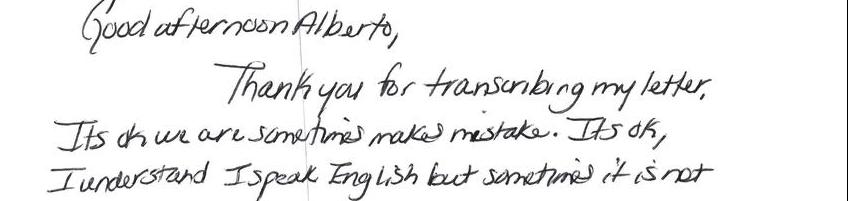 Good afternoon Alberto,
Thank you for transcribing my letter.
Its ok we are sometimes makes mistake. Its ok,
I understand I speak English but sometimes it is not